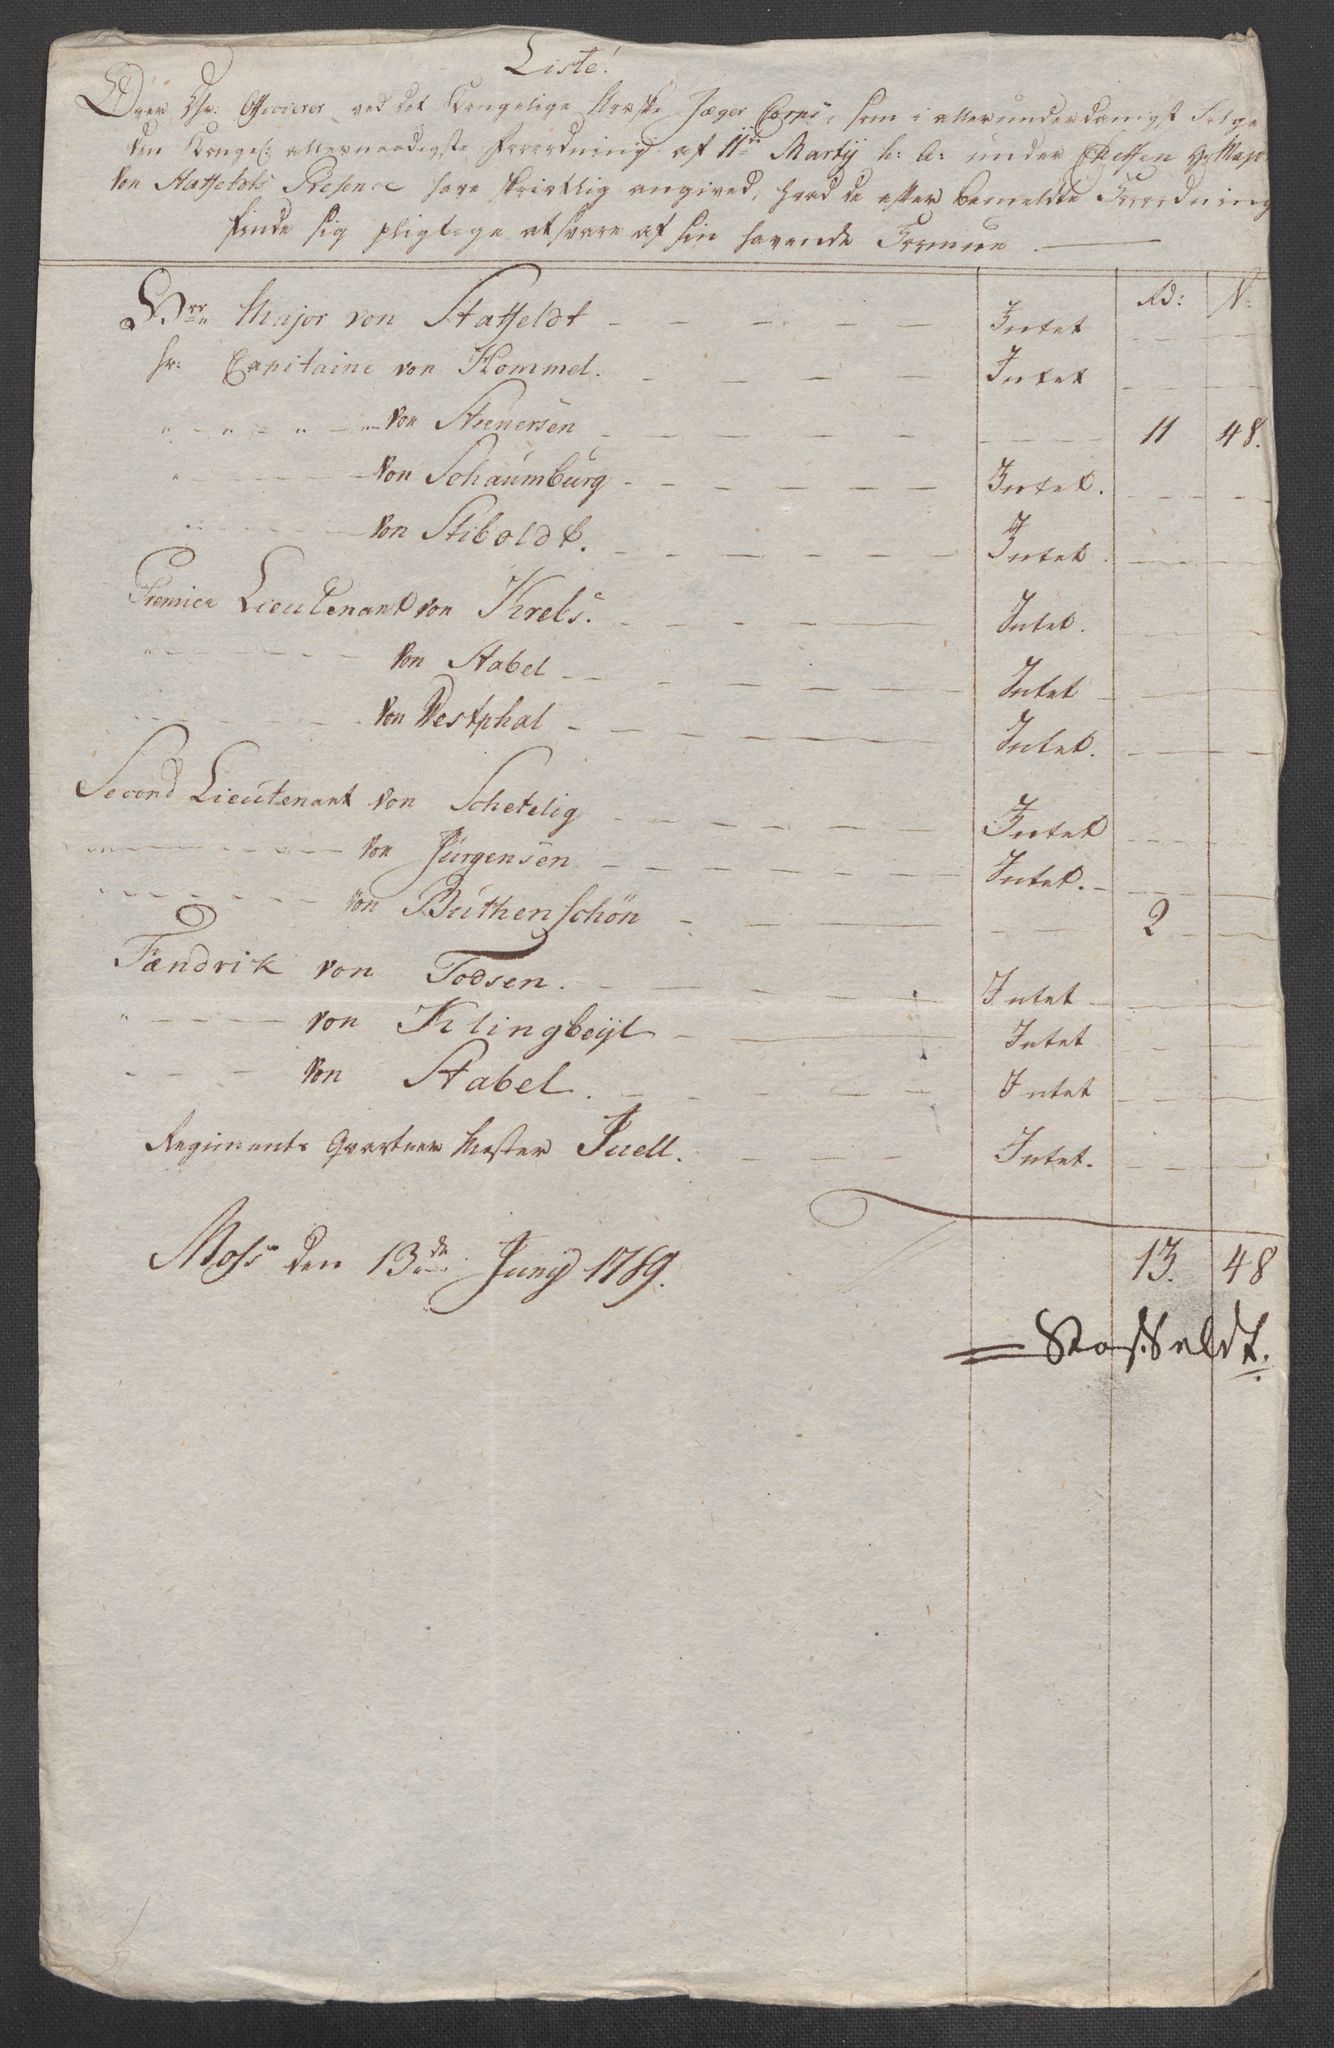 Liste!
Over Hr: Officierer ved det Kongelige Norske Jæger Corps, som i allerunderdanigst Følge
den Kongel: allernaadigste Forordning af 11te Martij h: a: under Cheffen Hr Major
von Staffeldts Presence have skriftlig angived, hvad de efter bemeldte Forordning
finde sig pligtige at svare af sin havende Formue.
Rd: S:
Hrr Major von Staffeldt - - - - - Intet
hr: Capitaine von Hommel. - - - - Intet
" - " - " - " von Steenersen - - - - - 11 48.
" - von Schaumburg - - - - - Intet.
" - von Stiboldt. - - - - - Intet.
Premier Lieutenant von Krebs. - - - - Intet.
" - von Stabel - - - - - Intet
- von Westphal - - - - - Intet.
Second Lieutenant von Schetelig - - - - Intet
- von Jürgensen - - - - Intet.
- von Buthenschön - - - - 2
Fændrik von Todsen. - - - - Intet
" - von Klingbeijl - - - - Intet
- von Stabel. - - - - Intet
Regiments Qvarteer Mester Juell. - - - Intet.
13. 48
Moss den 13de Junij 1789.
Staffeldt.